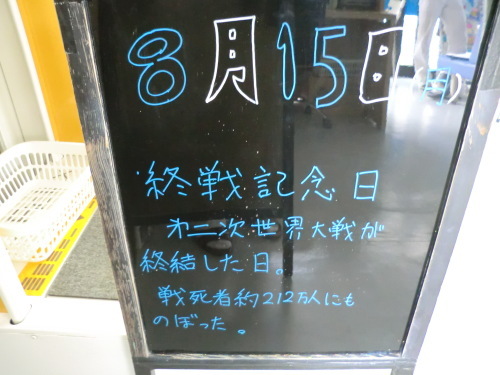 8月15日(円)
終戦記念日
オ二次世界大戦が
終結した日。
戦死者約212万人にも
のぼった。